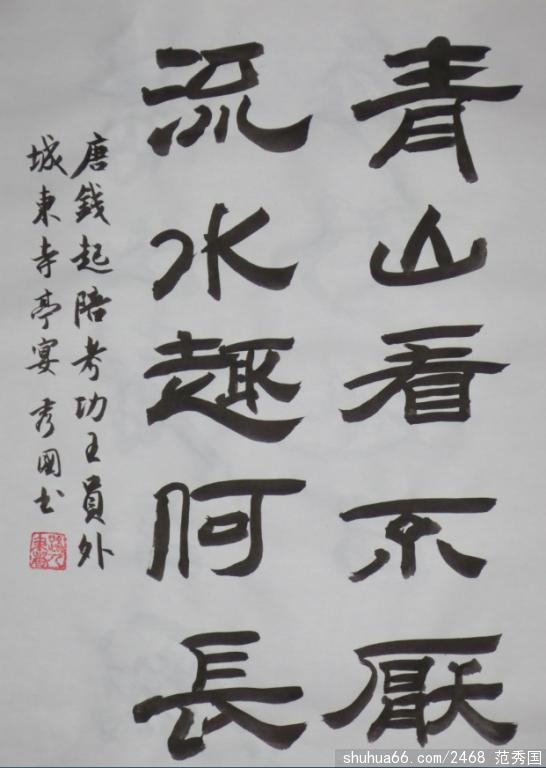 青山看不厭
流水趣何長
唐錢起陪考功王員外
城東寺亭宴 秀國书
shuhua66.com/2468 范秀国